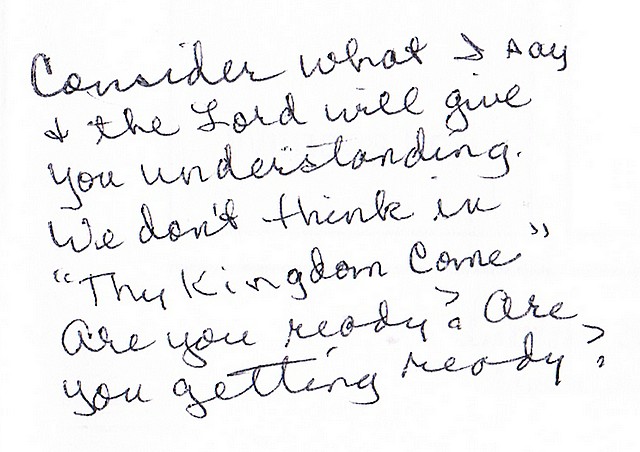 Consider what I say
& the Lord will give
you understanding.
We don't think in
"Thy Kingdom Come"
Are you ready? Are
you getting ready?